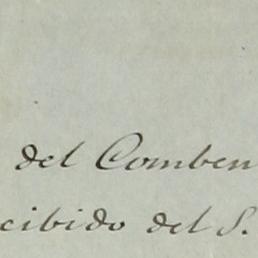 del Comben
cibido del S.